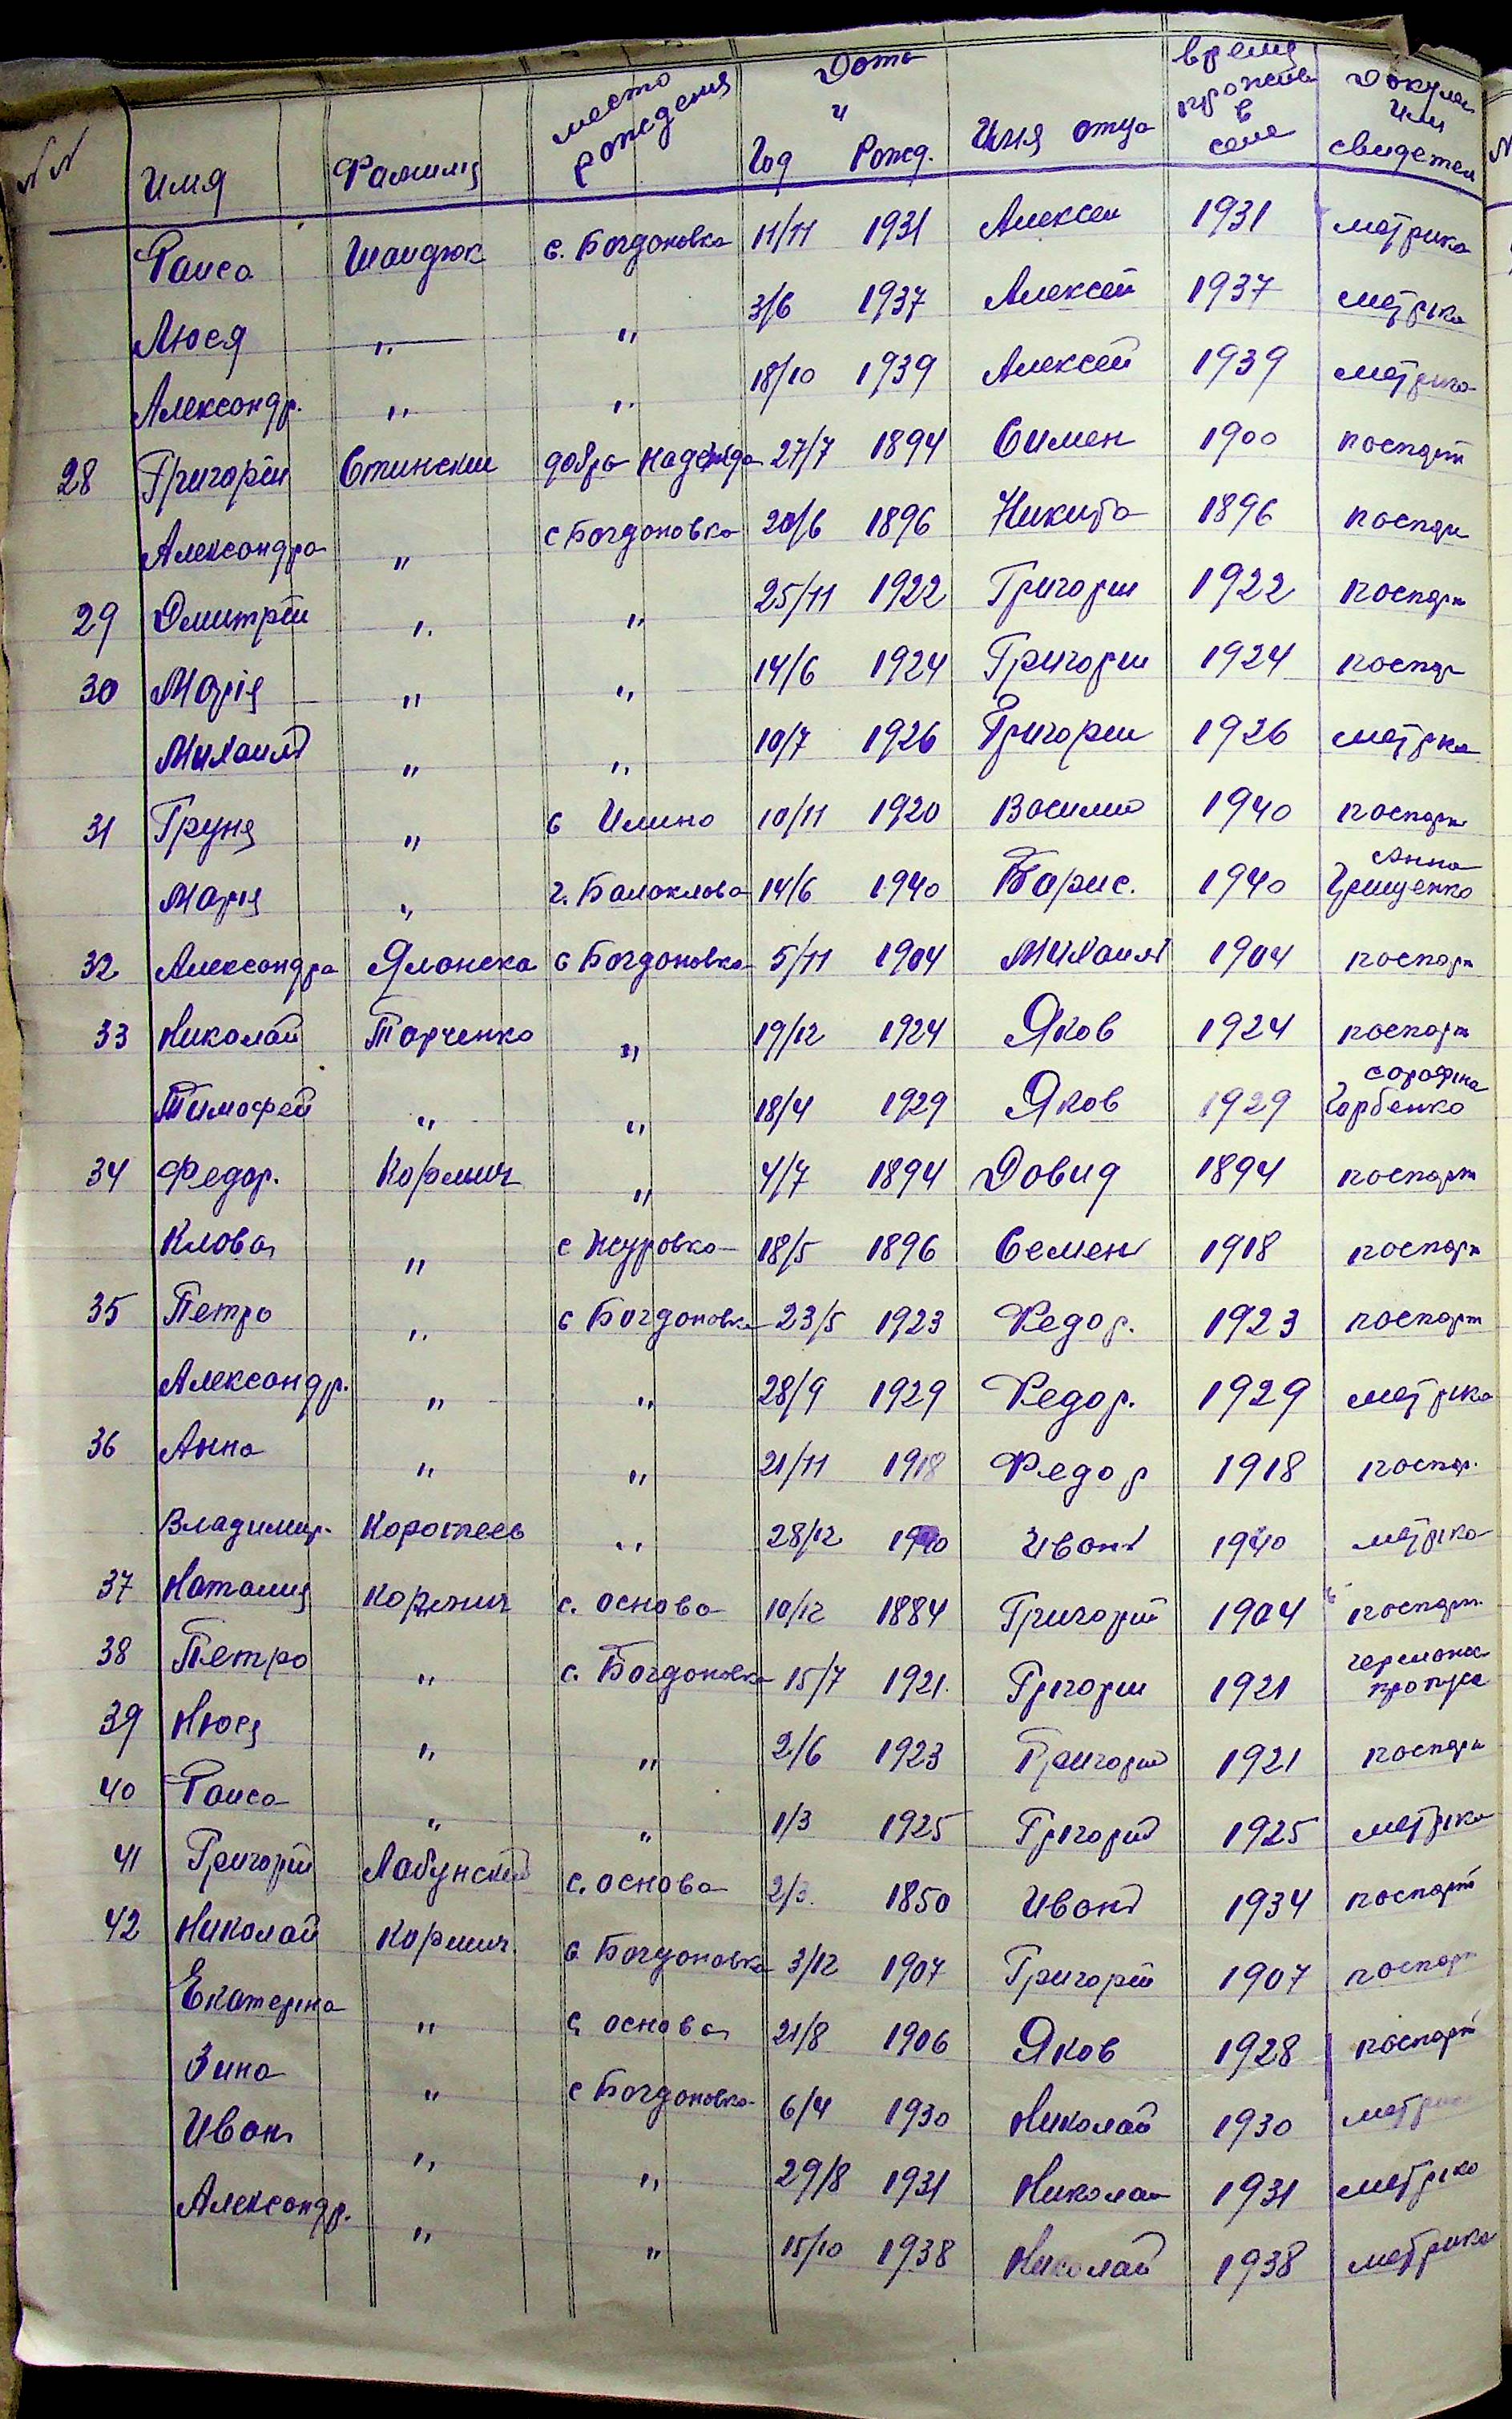 NN Имя Фамилия место рождения Дата и Год Рожд. Имя отца время прожив в селе Докумен или свидетел
Раиса Шаидюк с. Богдановка 11/11 1931 Алексеи 1931 метрика
Люся " " 3/6 1937 Алексей 1937 метріка
Александр. " " 18/10 1939 Алексей 1939 метрика
28 Григорій Стински Надежда 27/7 1894 Симен 1900 паспорт
Александра " с Богдановка 20/6 1896 Никита 1896 паспорт
29 Дмитрій " " 25/11 1922 Григори 1922 паспорт
30 Марія " " 14/6 1924 Григори 1924 паспор
Михаил " " 10/7 1926 Григори 1926 метрка
31 Груня " с Илино 10/11 1920 Василий 1940 паспорт
Марія " г. Балаклова 14/6 1940 Борис. 1940 Анна Грищенко
32 Александра Ялонска с Богдановка 5/11 1904 Михаил 1904 паспорт
33 Николай Тарченко " 19/12 1924 Яков 1924 паспорт
Тимофей " " 18/4 1929 Яков 1929 Сорофіна Горбенко
34 Федор. Кормич " 4/7 1894 Довид 1894 паспорт
Клова " с Журовка 18/5 1896 Семен 1918 паспорт
35 Петро " с Богдановка 23/5 1923 Федор. 1923 паспорт
Александр. " " 28/9 1929 Федор. 1929 метріка
36 Анна " " 21/11 1918 Федор 1918 паспор.
Владимир. Коротеев " 28/12 1940 Иван 1940 метріка
37 Наталия Кормич с. основа 10/12 1884 Григорий 1904 паспорт.
38 Петро " с. Богдановка 15/7 1921. Грігори 1921 германск пропуск
39 Нюся " " 2/6 1923 Григорий 1921 паспорт
40 Раиса " " 1/3 1925 Грігорий 1925 метріка
41 Григорій Лабунский с. основа 2/3. 1850 Иван 1934 паспорт
42 Николай Кормич. с Богдановка 3/12 1907 Григорій 1907 паспорт
Екатеріна " с основа 21/8 1906 Яков 1928 паспорт
Зина " с Богдановка 6/4 1930 Николай 1930 метрика
Иван " " 29/8 1931 Николаи 1931 метріка
Александр. " " 15/10 1938 Николай 1938 метрика